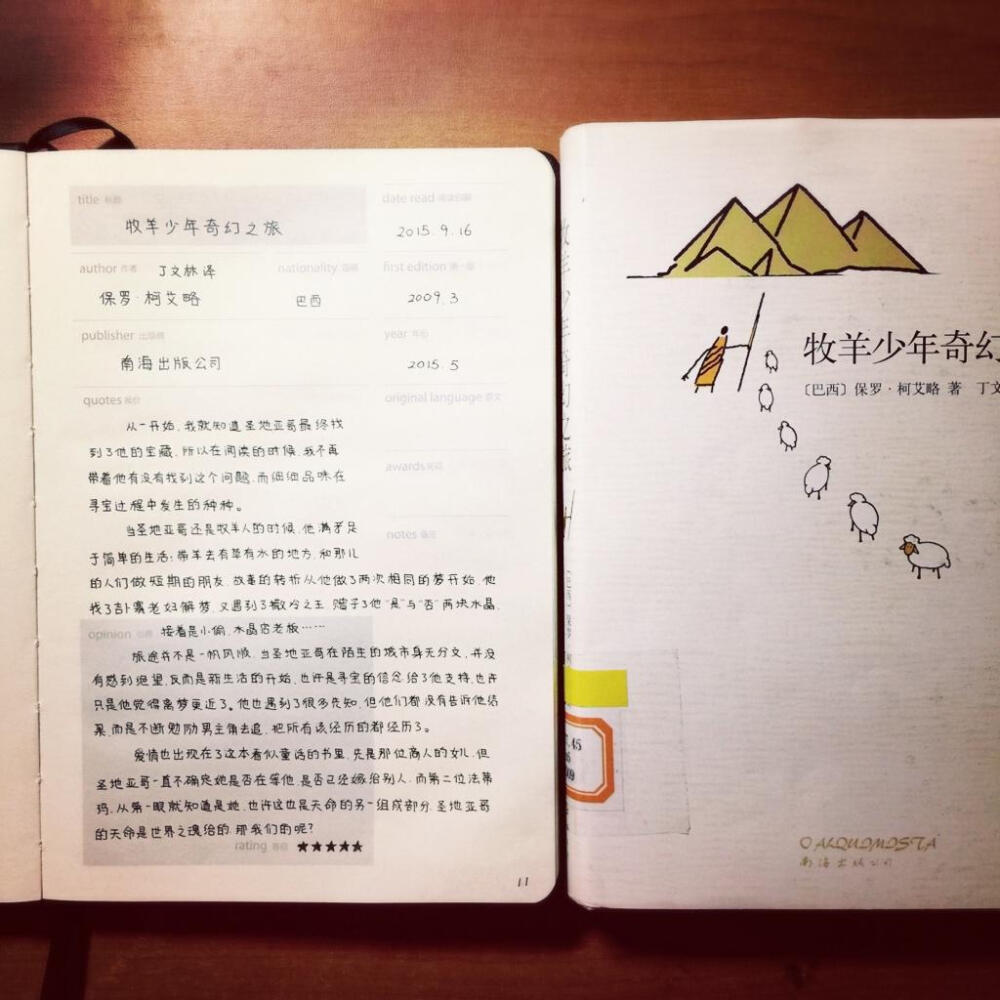 title 标题
牧羊少年奇幻之旅
date read 阅读日期
2015.9.16
author 作者
丁文林 译
保罗·柯艾略
nationality 国籍
巴西
first edition 第一版
2009.3
publisher 出版商
南海出版公司
year 年份
2015.5
quotes 报价
从一开始,我就知道圣地亚哥最终找
到了他的宝藏,所以在阅读的时候,我不再
带着他有没有找到这个问题,而细细品味在
寻宝过程中发生的种种。
当圣地亚哥还是牧羊人的时候,他满足
于简单的生活:带羊去有草有水的地方,和那儿
的人们做短期的朋友,故事的转折从他做了两次相同的梦开始,他
找了吉卜赛老妇解梦,又遇到了撒冷之王,赠予了他“是”与“否”两块水晶,
接着是小偷,水晶店老板……
original language 原文
awards 奖项
notes 备注
opinion 心得
旅途并不是一帆风顺,当圣地亚哥在陌生的城市身无分文,并没
有感到绝望,反而是新生活的开始,也许是寻宝的信念给了他支持,也许
只是他觉得离梦更近了。他也遇到了很多先知,但他们都没有告诉他结
果,而是不断勉励男主角去追,把所有该经历的都经历了。
爱情也出现在了这本看似童话的书里,先是那位商人的女儿,但
圣地亚哥一直不确定她是否在等他,是否已经嫁给别人,而第二位法蒂
玛,从第一眼就知道是她,也许这也是天命的另一组成部分,圣地亚哥
的天命是世界之魂给的,那我们的呢?
rating 等级 ★★★★★
11
牧羊少年奇幻之旅
牧羊少年奇幻
〔巴西〕保罗·柯艾略 著 丁文
.45
09
O ALQUIMISTA
南海出版公司